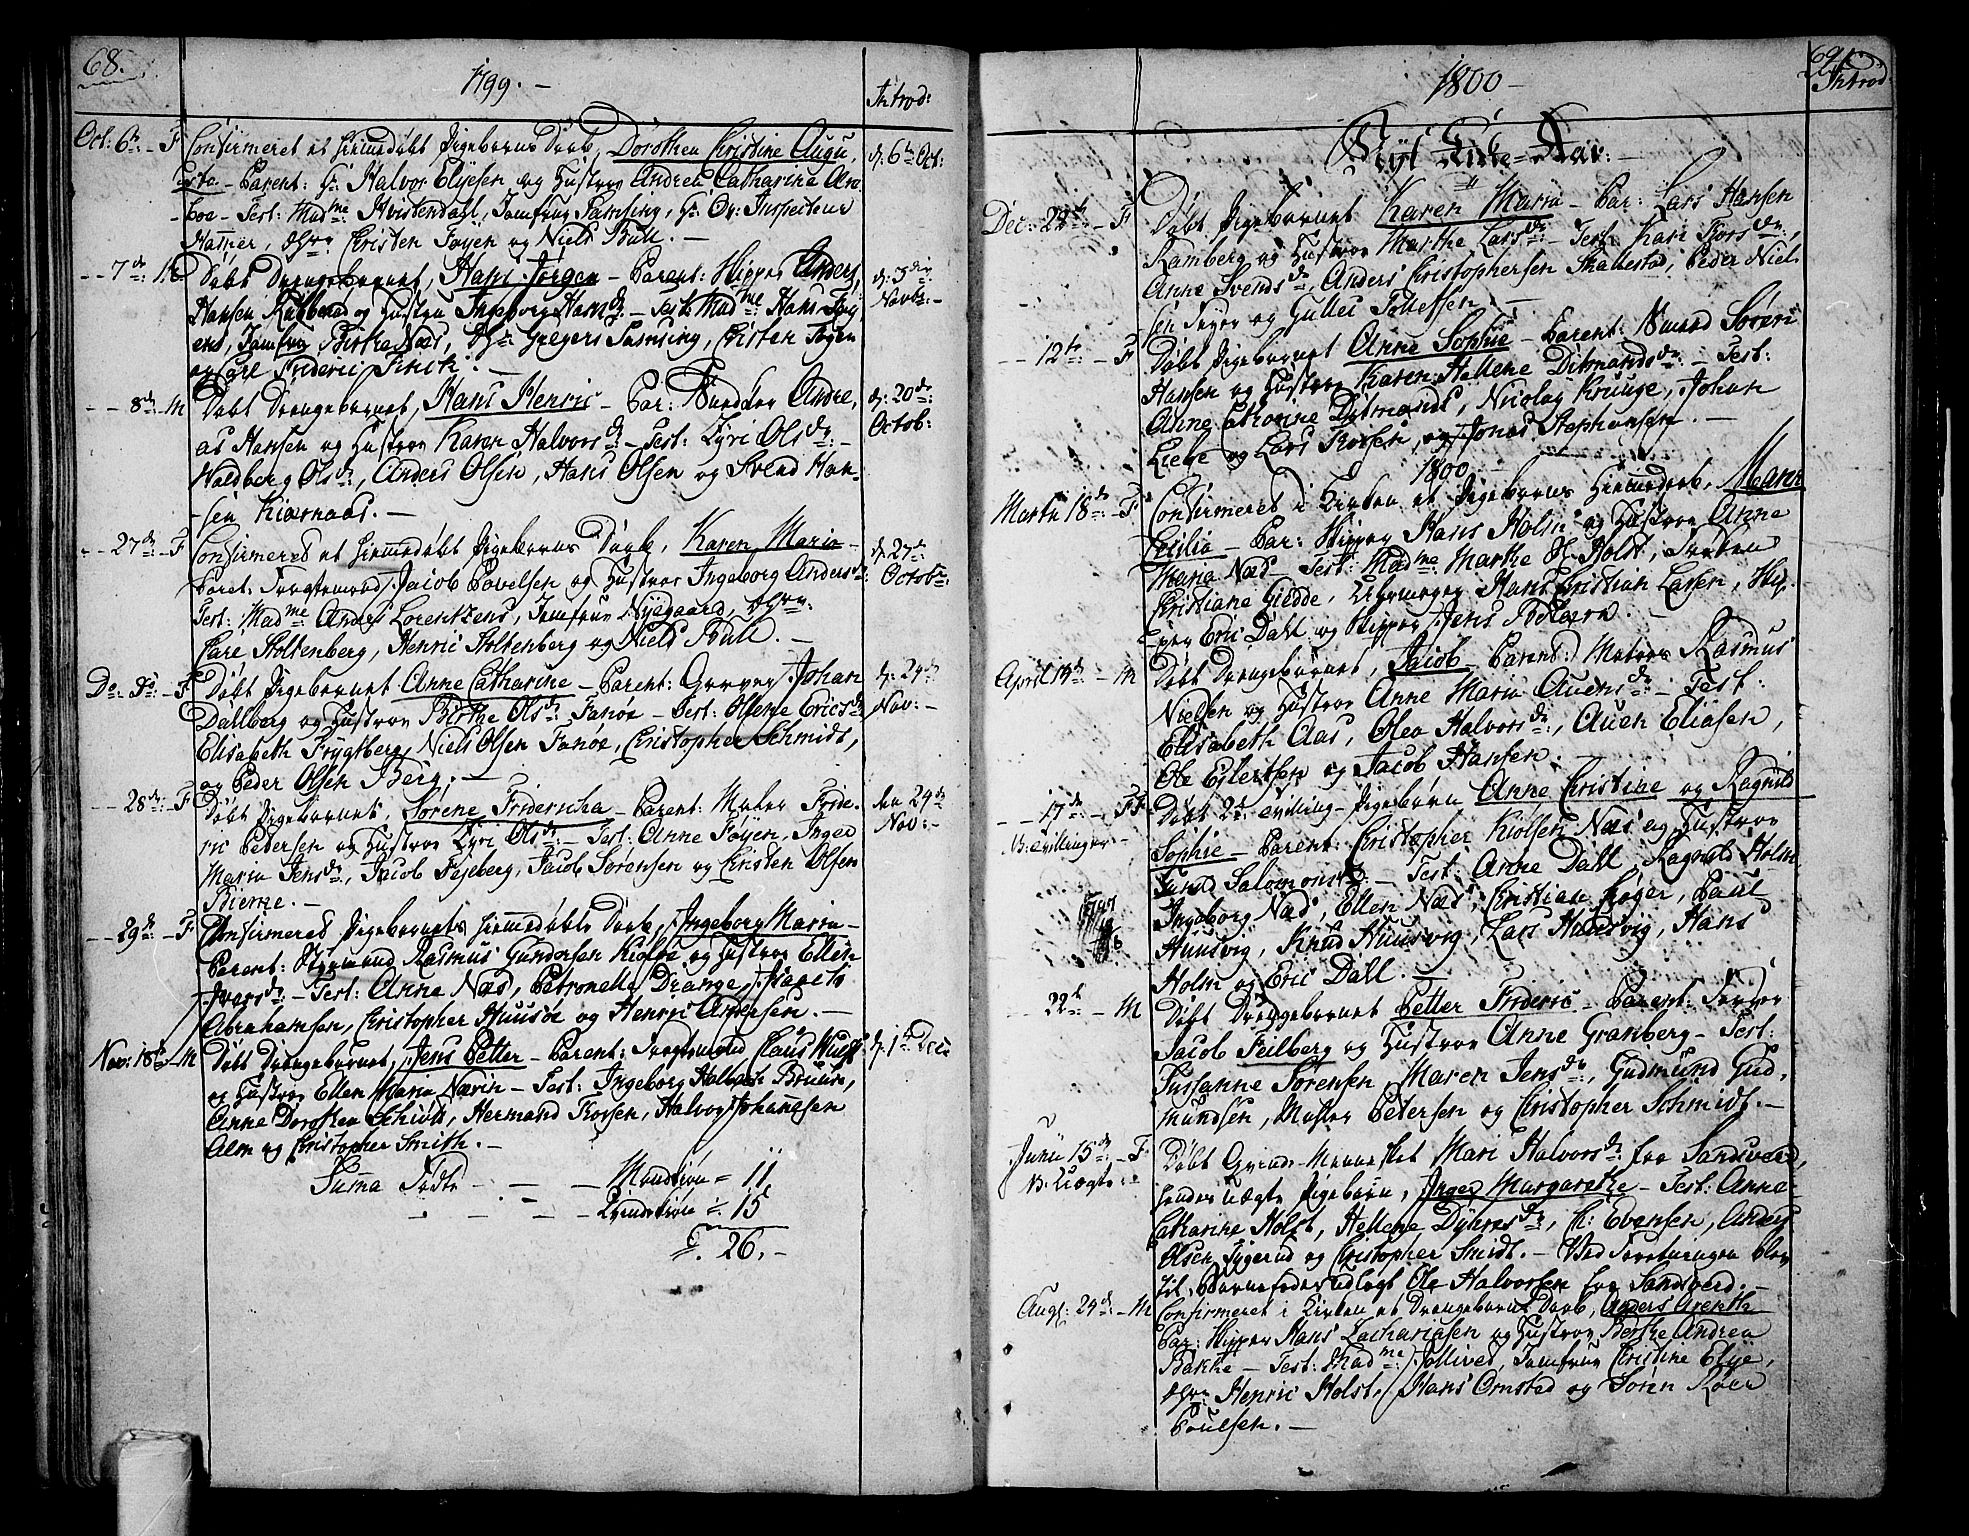 68.
1799. –
Introd:
Oct: 6te – F
Confirmeret et hiemmedøbt Pigebarns Daab, Dorothea Christine Augu,
sta – Parent: Hr Halvor Elyesen og Hustroe Andrea Catharine An
– Test: Madme: Hvistendall, Jomfrue Samsing, Hr Ov: Inspecteur
, Christen Føyen og Niels Bull. –
d: 6te Oct:
– – 7de: M
Døbt Drengebarnet, Hans Jørgen – Parent: Skipper Anders
Hansen og Hustroe Ingeborg Hansdr: – Test: Madme: Hans Føy,
ens, Jomfrue Birthe Næs, Hr: Gregers Samsing, Christen Føyen
og Carl Frideric Smith. –
Novbr: –
– – 8de – M
Døbt Drengebarnet, Hans Henric – Par: Andre,
as Hansen og Hustroe Karen Halvorsdr: – Test: Zyri Olsdr: –
Waldberg Olsdr:, Anders Olsen, Hans Olsen og Svend Han–
sen Kiærnaas. –
d: 20de:
Octob:
– – 27de: – F
Confirmered et hiemmedøbt Pigebarns Daab, Karen Maria –
Parent: Fragtemand Jacob Povelsen og Hustroe Ingeborg Andersdr:
Test: Madme Anders Lorentzens, Jomfrue Nyegaard,
Carl Stoltenberg, Henric Stoltenberg og Niels Bull. –
d: 27de
Octobr:
Do: Do: – F
Døbt Pigebarnet Anne Catharine – Parent: Garver Johan
Dallberg og Hustroe Birthe Olsdr: Fanøe – Test: Ollene Ericsdr:
Elisabeth Frygtberg, Niels Olsen Fanøe, Christopher Schmidt,
og Peder Olsen Berg. –
d: 24de
Nov: –
– – 28de: – F
Døbt Pigebarnet, Sørene Fridericha – Parent: Mater Fride–
ric Pedersen og Hustroe Zyri Olsdr: – Test: Anne Føyen, Inger
Maria Jensdr:, Jacob Fejeberg, Jacob Sørensen og Christen Olsen
Bierne. –
den 24de
Nov: –
– – 29de: – F
Confirmered Pigebarnets hiemmedøbte Daab, Ingeborg Maria –
Parent: Styrmand Rasmus Gundersen Kiølse og Hustroe Ellen
Iversdr: – Test: Anne Næs, Petronelle Drange, Jsaach
Abrahamsen, Christopher Huusøe og Henric Andersen. –
Nov: 18de – M
Døbt Drengebarnet, Jens Petter – Parent: Fragtemand Claus Wulf
og Hustroe Ellen Maria Nærin – Test: Ingeborg Halvor Bruun,
Anne Dorothea Schiøtt, Hermand Trosen, Halvor Johannesen
Alm og Christopher Smith. –
d: 1te Dec:
Suma Fødte – – – Mandkiøn = 11
– – – Qvindekiøn = 15
S. 26. –
69.
Introd:
1800 –
Nyt Kirke=Aar: –
Dec: – F
Døbt Pigebarnet Karen Maria – Par: Lars Hansen
Ramberg og Hustroe Marthe Larsdr: – Test: Kari Torsdr:,
Anne Svendsdr:, Anders Christophersen Skallestad, Peder Niel
sen og Gullec Tollefsen. –
– – 12te – F
Døbt Pigebarnet Anne Sophie – Parent: Søren
Hansen og Hustroe Karen Hellene Ditmandsdr: – Test:
Anne Cathrine Dytmands, Nicolay Kruuse, Johan
Liebe og Lars Trosen, og Jonas Stephansen. –
1800. –
Martii 18de – F
Confirmeret i Kirken et Pigebarns hiemmedaab, Maren
Cecilia – Par: Skipper Hans Holm og Hustroe Anne
Maria Næs – Test: Madme: Marthe Holst,
Christiane Giedde, Uhrmager Hans Christian Larsen, Skip,
per Eric Dall og Skipper Jens –
April – M
Døbt Drengebarnet, Jacob – Parent: Matros Rasmus
Nielsen og Hustroe Anne Maria Auensdr: – Test:
Elisabeth Aas, Olea Halvorsdr:, Auen Eliasen,
Ole Eilertsen og Jacob Hansen. –
– – 17de – FF
NB: Tvillinger –
Døbt 2de Tvilling-Pigebørn Anne Christine og Ragnild
Sophie – Parent: Christopher Kiølsen Næs og Hustroe
Salomonsdr – Test: Anne Dall, Ragnild Holm
Ingeborg Næs, Ellen Næs, Christian Høger, Paul
Huusvig, Knud Huusvig, Lars Huusvig, Hans
Holm og Eric Dall. –
– – 22de – M
Døbt Drengebarnet Petter Frideric – Parent: Farver
Jacob Feilberg og Hustroe Anne Granberg – Test:
Susanne Sørensen, Maren Jensdr:, Gudmund Gud,
mundsen, Mater Petersen og Christopher Schmidt. –
Junii 15de – F
NB: Uægte: –
Døbt Qvinde-Mennesket Mari Halvorsdr: fra Sandsverd,
hendes uægte Pigebarn, Inger Margarethe – Test: Anne
Catharine Holst, Hellene Dyhresdr:, Ch: Evensen, Anders
Olsen og Christopher Smidt. – Ved Forretningen blev
til Barnefader udlagt Ole Halvorsen fra Sandsverd. –
Augt: 24de: – M
Confirmeret i Kirken et Drengebarns Daab, Anders Arenth
Par: Skipper Hans Zachariasen og Hustroe Berthe Andrea
Bakke – Test: Madme: Jollived, Jomfrue Christine Elye,
Henric Holst, Hans Omsted og Søren Roer
Poulsen. –